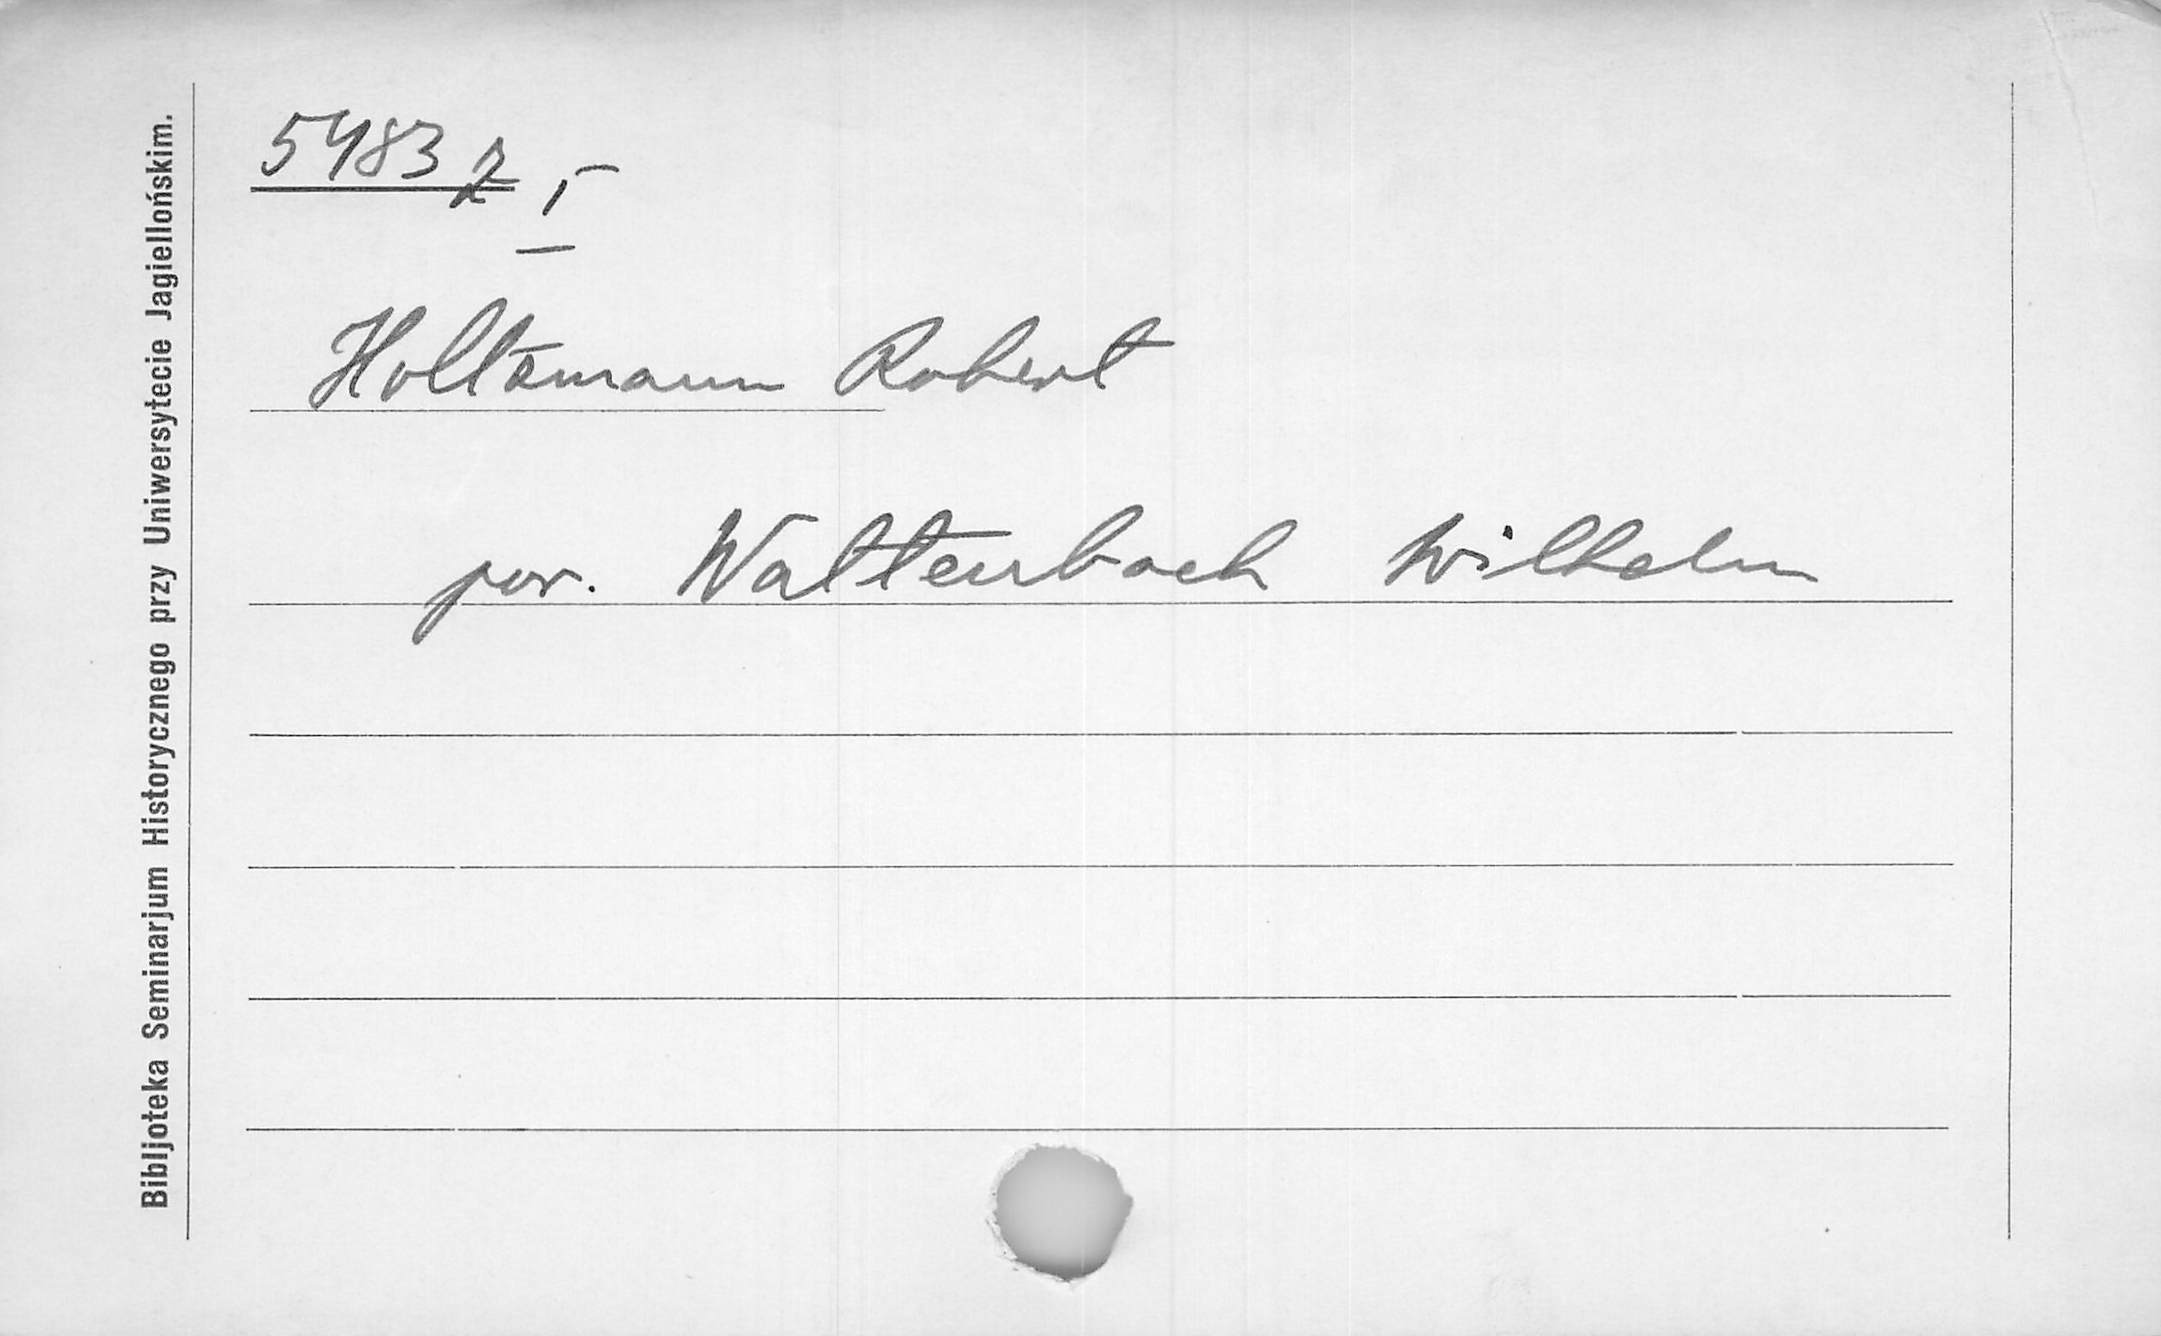 5483 Z I
Holtzmann Robert
por. Wattenbach Wilhelm
Bibljoteka Seminarjum Historycznego przy Uniwersytecie Jagiellońskim.